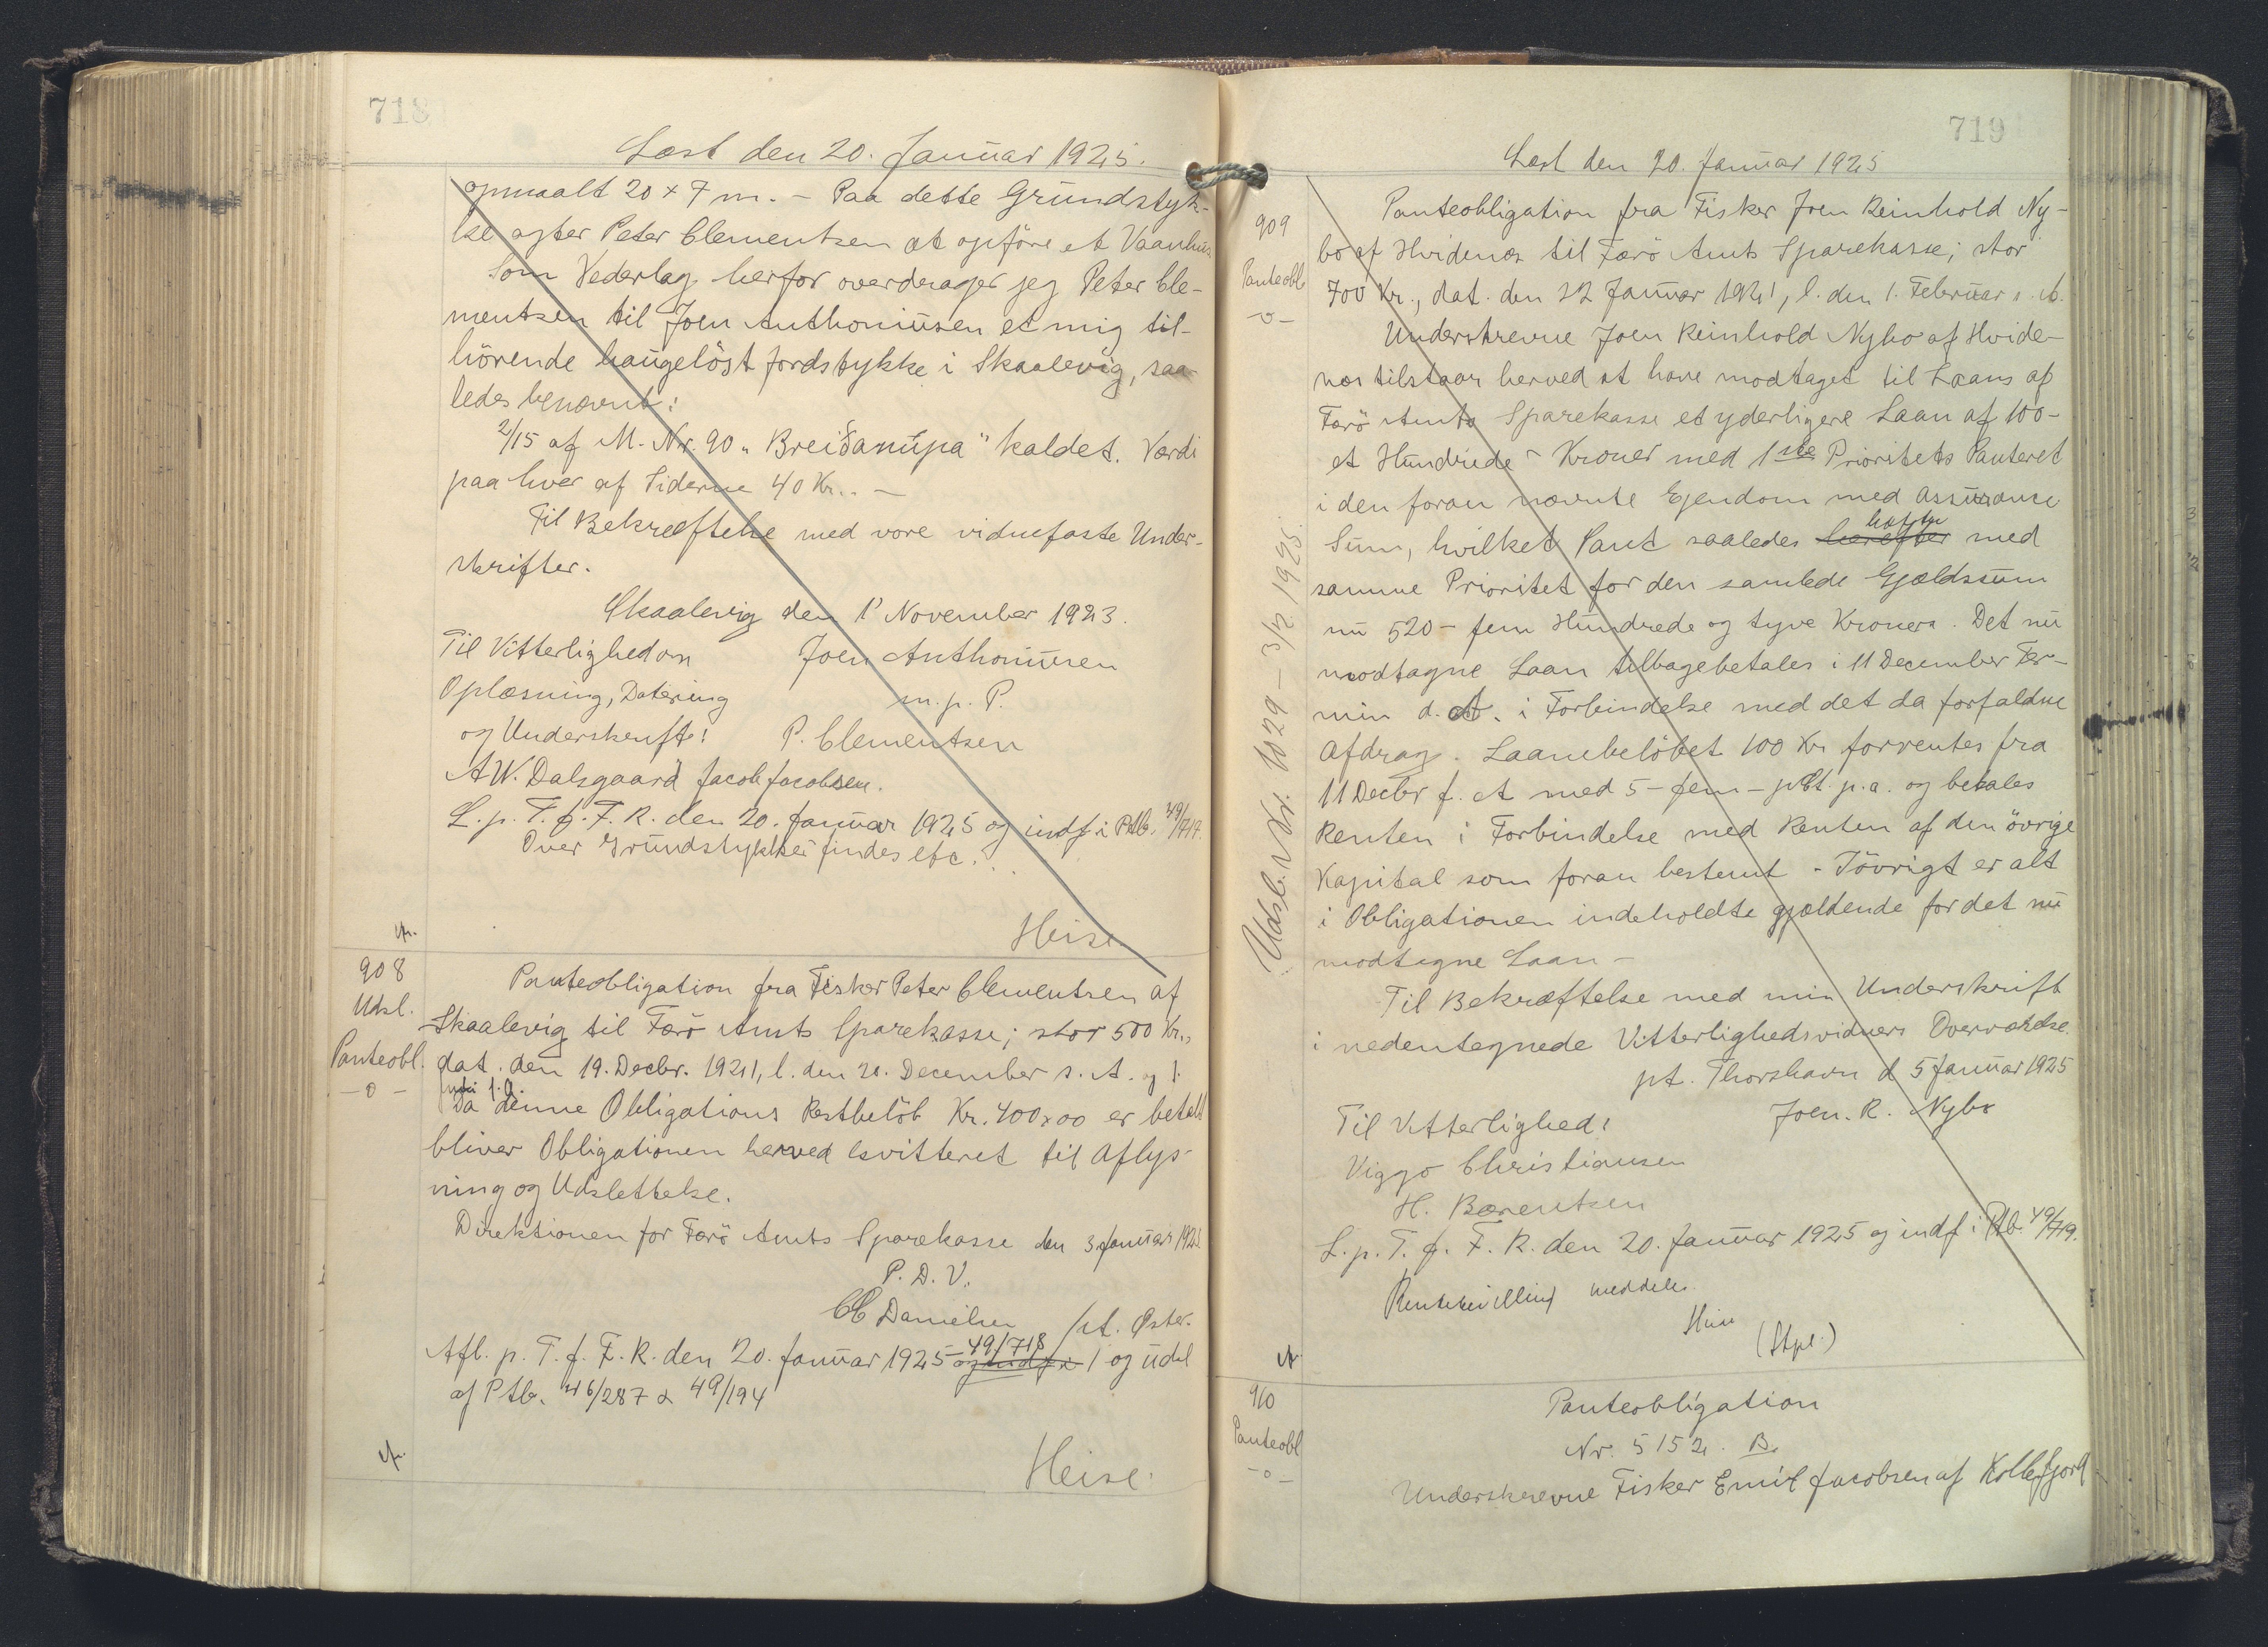 718
Læst den 20. Januar 1925.
opmaalt 20 x 7 m. - Paa dette Grundstyk-
ke agter Peter Clementsen at opföre et Vaanhus
Som Vederlag herfor overdrager jeg Peter Cle-
mentsen til Joen Anthoniusen et mig til-
hörende haugelöst Jordstykke i Skaalevig, saa-
ledes benævnt:
2/15 af M. Nr. 90 „Breiðanúpa" kaldet. Værdi
paa hver af Siderne 40 Kr.. -
Til Bekræftelse med vore vidnefaste Under-
skrifter.
Skaalevig den 1' November 1923.
Til Vitterlighed om
Joen Anthoniusen
Oplæsning, Datering
m. p. P.
og Underskrift:
P. Clementsen
A W. Dalsgaard Jacob Jacobsen.
L. p. T. f. F. R. den 20. Januar 1925 og indf i Ptb. 49/717.
Over Grundstykket findes etc.
Heise
908
Udsl.
Panteobl.
- o -
Panteobligation fra Fisker Peter Clementsen af
Skaalevig til Færö Amts Sparekasse; stor 500 Kr.,
dat. den 19. Decbr. 1921, l. den 20. December s. A. og 1.
Da denne Obligations Restbelöb Kr. 400x00 er betalt
bliver Obligationen herved kvitteret til Aflys-
ning og Udslettelse.
Direktionen for Færö Amts Sparekasse den 3. Januar 1925
P. D. V.
CC Danielsen /st. Øster.
Afl. p. T. f. F. R. den 20. Januar 1925 og indf i 49/718 / og udsl
af Ptb. 46/287 & 49/194
Heise.
719
Læst den 20. Januar 1925
909
Panteobl
- o -
Udsl. Nr. 1029 - 3/2 1925.
Panteobligation fra Fisker Joen Reinhold Ny-
bo af Hvidenæs til Færö Amts Sparekasse; stor
700 Kr., dat. den 22 Januar 1921, l. den 1. Februar s. A.
Underskrevne Joen Reinhold Nybo af Hvide-
næs tilstaar herved at have modtaget til Laans af
Færö Amts Sparekasse et yderligere Laan af 100-
et Hundrede - Kroner med 1ste Prioritets Panteret
i den foran nævnte Ejendom med Assurance
Sum, hvilket Pant saaledes herefter hæfter med
samme Prioritet for den samlede Gjældssum
nu 520 - fem Hundrede og tyve Kroner. Det nu
modtagne Laan tilbagebetales i 11 December Ter-
min d. A. i Forbindelse med det da forfaldne
Afdrag. Laanebelöbet 100 Kr forrentes fra
11 Decbr f. A med 5 - fem - pCt. p. a. og betales
Renten i Forbindelse med Renten af den övrige
Kapital som foran bestemt - Iövrigt er alt
i Obligationen indeholdte gjældende for det nu
modtagne Laan -
Til Bekræftelse med min Underskrift
i nedentegnede Vitterlighedsvidners Overværelse.
pt. Thorshavn d 5 Januar 1925
Joen. R. Nybo
Til Vitterlighed:
Viggo Christiansen
H. Bærentsen
L. p. T. f. F. R. den 20. Januar 1925 og indf i Ptb. 49/719.
Rentebevilling meddeles.
Heise
(Stpl.)
910
Panteobl
- o -
Panteobligation
Nr. 5152. B.
Underskrevne Fisker Emil Jacobsen af Kollefjord